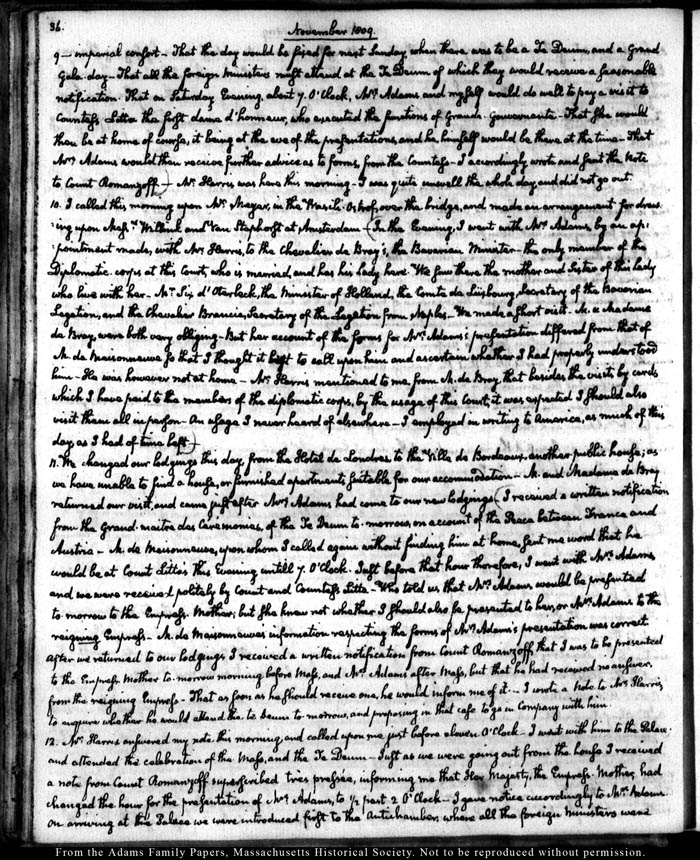 36.
November 1809.
9 — imperial consort — That the day would be fixed for next Sunday when there was to be a Te Deum, and a grand
Gala-day — That all the foreign Ministers must attend at the Te Deum of which they would receive a seasonable
notification. That on Saturday Evening, about 7. O'Clock, Mrs Adams and myself would do well to pay a visit to
Countess Litta the first dame d'honneur, who executed the functions of Grande Gouvernante — That she would
then be at home of course, it being at the eve of the presentations, and he himself would be there at the time — That
Mrs Adams would then receive further advice as to forms, from the Countess — I accordingly wrote and sent the Note
to Count Romanzoff.) — Mr Harris was here this morning — I was quite unwell the whole day, and did not go out.
10. I called this morning upon Mr Meyer, in the Wasili-Ostrof, over the bridge, and made an arrangement for draw-
ing upon Messrs Willink and Van Staphorst at Amsterdam — (In the Evening, I went with Mrs Adams, by an ap-
pointment made, with Mr Harris, to the Chevalier de Bray's, the Bavarian Minister — the only member of the
Diplomatic corps at this Court, who is married, and has his lady here. We saw there the mother and Sister of this lady
who live with her — Mr Six d'Oterbeek, the Minister of Holland, the Comte de Luxbourg, Secretary of the Bavarian
Legation, and the Chevalier Brancia, Secretary of the Legation from Naples — We made a short visit. M. & Madame
de Bray, were both very obliging — But her account of the forms for Mrs Adams's presentation differed from that of
M. de Maisonneuve so that I thought it best to call upon him and ascertain whether I had properly understood
him — He was however not at home — Mr Harris mentioned to me, from M. de Bray, that besides the visits by cards
which I have paid to the members of the diplomatic corps, by the usage of this Court, it was expected I should also
visit them all in person — An usage I never heard of elsewhere — I employed in writing to America, as much of this
day, as I had of time left)
11. We changed our lodgings this day, from the Hotel de Londres to the Ville de Bordeaux, another public house; as
we have unable to find a house, or furnished apartments suitable for our accommodation — M. and Madame de Bray
returned our visit, and came just after Mrs Adams had come to our new lodgings (I received a written notification
from the Grand-maitre des Ceremonies, of the Te Deum to-morrow, on account of the Peace between France and
Austria — M. de Maisonneuve, upon whom I called again without finding him at home, sent me word that he
would be at Count Litta's this Evening untill 7. O'Clock. Just before that hour therefore, I went with Mrs Adams
and we were received politely by Count and Countess Litta — Who told us that Mrs Adams would be presented
to-morrow to the Empress-Mother; but She knew not whether I should also be presented to her, or Mrs Adams to the
reigning Empress — M. de Maisonneuve's information respecting the forms of Mrs Adams's presentation was correct
After we returned to our lodgings I received a written notification from Count Romanzoff, that I was to be presented
to the Empress Mother to-morrow morning before Mass, and Mrs Adams after Mass, but that he had received no answer,
from the reigning Empress — That as soon as he should receive one, he would inform me of it... I wrote a Note to Mr Harris,
to enquire whether he would attend the Te Deum to-morrow, and proposing in that case to go in Company with him.
12. Mr Harris answered my note this morning, and called upon me just before eleven O'Clock — I went with him to the Palace
and attended the celebration of the Mass, and the Te Deum — Just as we were going out from the house I received
a note from Count Romanzoff superscribed très pressée, informing me that Her Majesty, the Empress-Mother, had
changed the hour for the presentation of Mrs Adams, to ½ past 2 O'Clock — I gave notice accordingly to Mrs Adams
On arriving at the Palace we were introduced first to the Antichamber, where all the foreign Ministers were
From the Adams Family Papers, Massachusetts Historical Society. Not to be reproduced without permission.